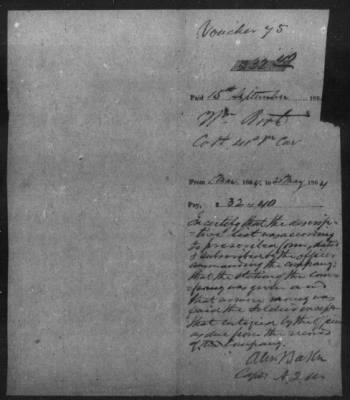 Voucher 75
$32 40
Paid 15th September 186
Wm Root
Co H Car
From Mar 1864, to May 1864
Pay, $32 40
I certify that the descrip-
tive list was according
to prescribed form, dated
& subscribed by the officer
commanding the company;
that the station of the com-
pany was given and
that
paid the soldier except
that by the
as due from the
of the Company.
Alex
Capt A.Q.M.